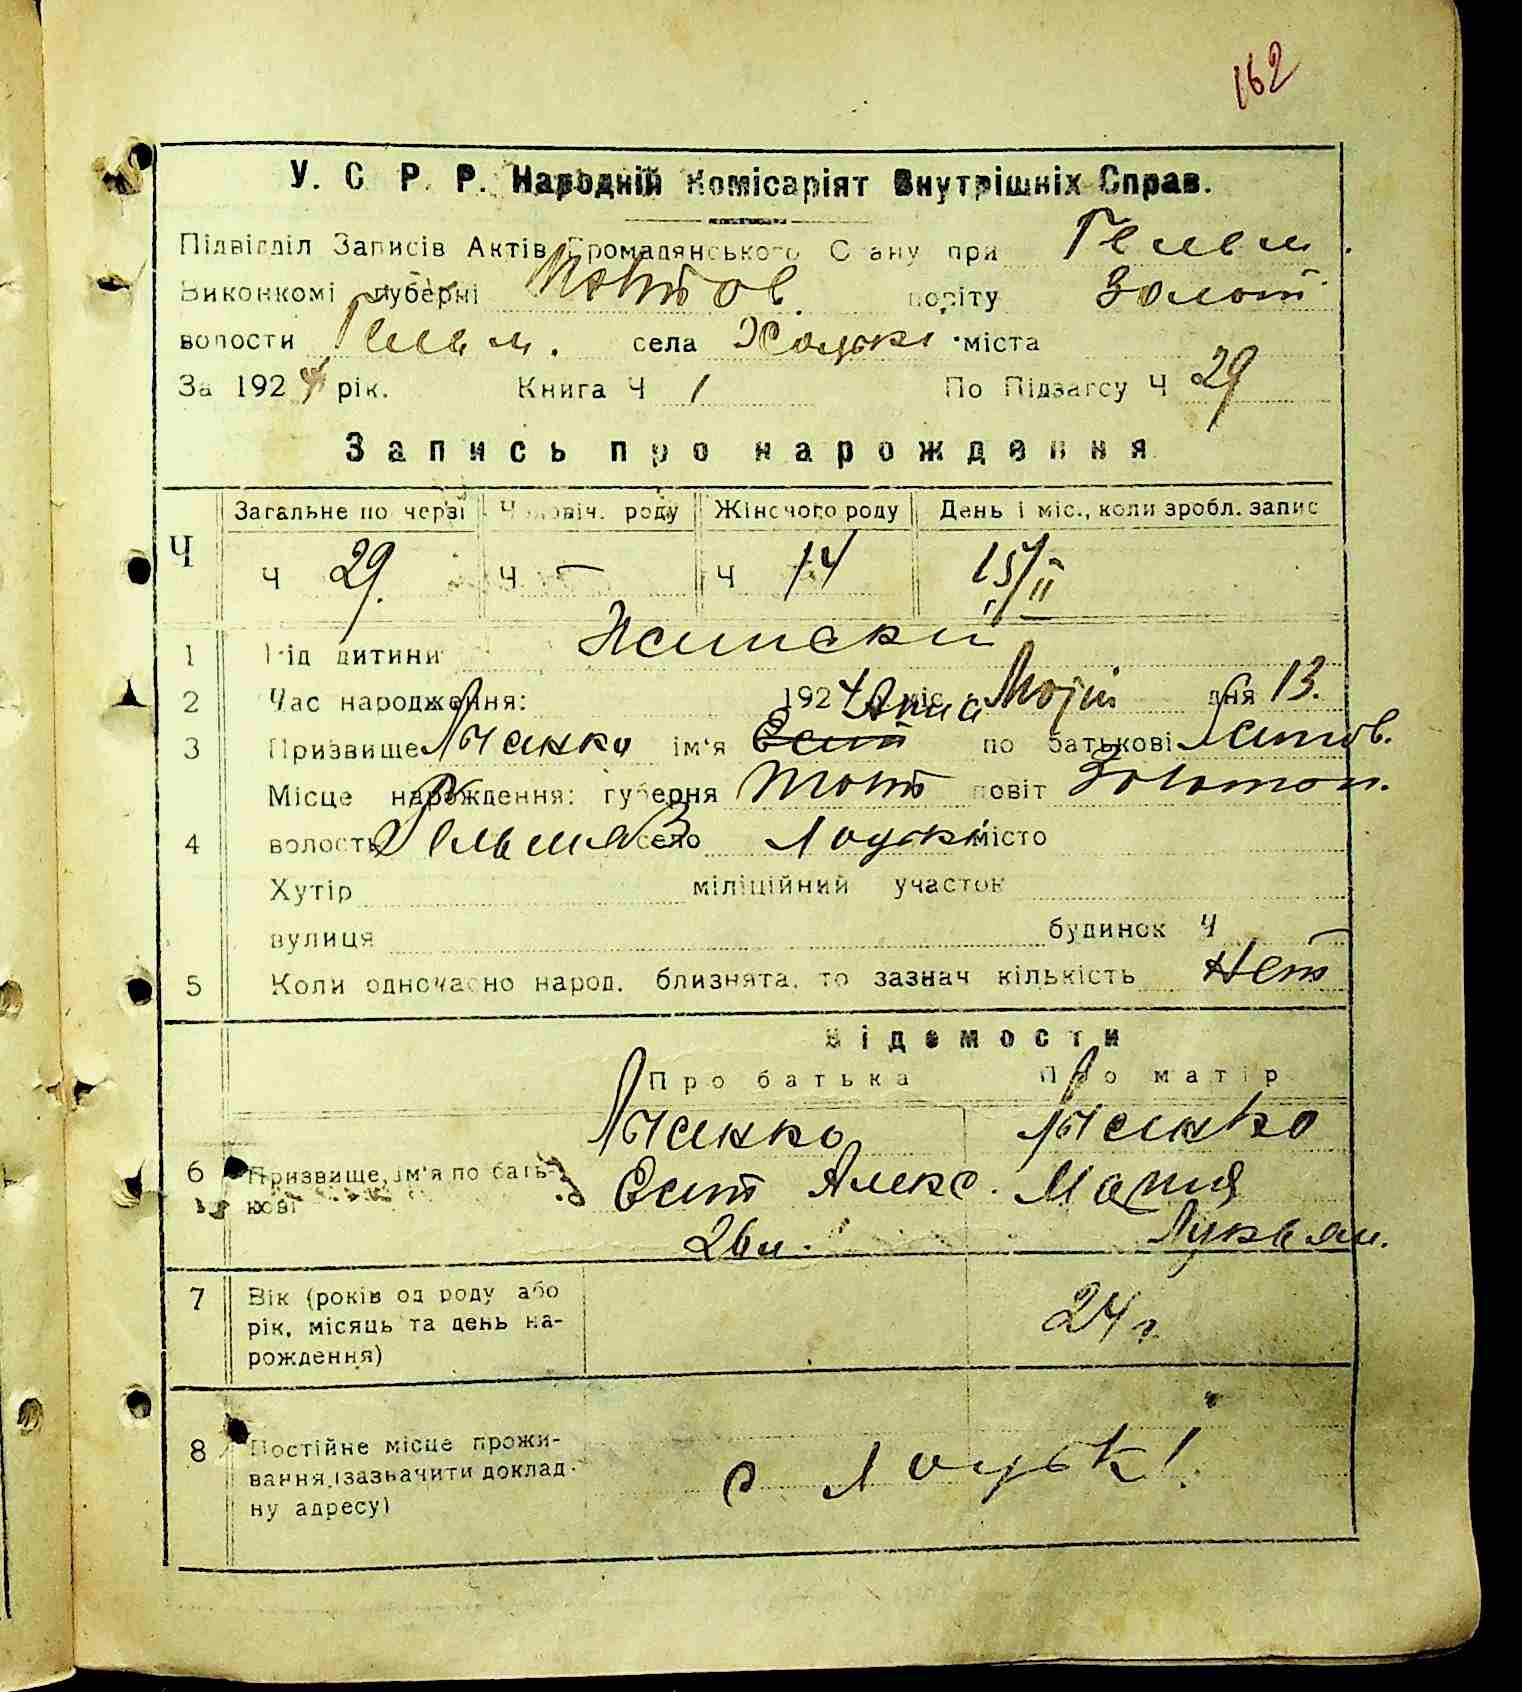 162
У. С. Р. Р. Народній Комісаріят Внутрішніх Справ.
Підвідділ Записів Актів Громадянського Стану при Гельм.
Виконкомі губерні Полтов повіту Золот.
волости Гельм. села Хоцьки міста
За 1924 рік. Книга Ч 1 По Підзагсу Ч 29
Запись про нарождення
Загальне по черзі Чоловіч. роду Жіночого роду День і міс., коли зробл. запис
Ч Ч 29. Ч — Ч 14 15/II
1 Рід дитини Женский
2 Час народження: 1924 міс. дня 13.
3 Призвище Лысенко ім'я Анна по батькові
Місце нарождення: губерня Полт повіт Золотон.
4 волость село Хоцьки місто
Хутір міліційний участок
вулиця будинок Ч
5 Коли одночасно народ. близнята, то зазнач кількість Нет
Відомости
Про батька Про матір
Лысенко Лысенко
6 Призвище, ім'я по бать- Алекс. Мария
кові 26 л. Лукьян.
7 Вік (років од роду або
рік, місяць та день на- 24 г.
рождення)
8 Постійне місце прожи-
вання (зазначити доклад- с Хоцьки
ну адресу)